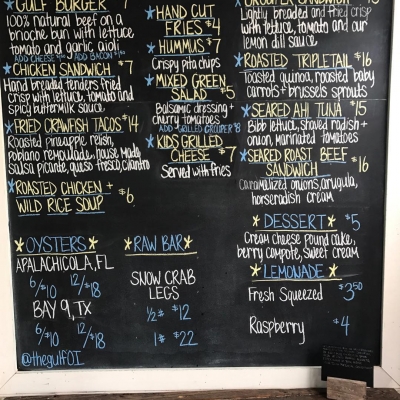 *GULF BURGER 7
100% natural beef on a
brioche bun with lettuce
tomato and garlic aioli
ADD CHEESE ADD BACON $1
*CHICKEN SANDWICH $7
Hand breaded tenders fried
crisp with lettuce, tomato and
spicy buttermilk sauce
*FRIED CRAWFISH TACOS $14
Roasted pineapple relish,
poblano remoulade, house made
salsa picante, queso-fresco, cilantro
*ROASTED CHICKEN +
WILD RICE SOUP $6
*OYSTERS*
APALACHICOLA, FL
6/$10 12/$18
BAY 9, TX
6/$10 12/$18
@thegulfOI
*HAND CUT
FRIES $4
*HUMMUS $7
Crispy pita chips
*MIXED GREEN
SALAD $5
Balsamic dressing +
cherry tomatoes
ADD GRILLED GROUPER $8
*KIDS GRILLED
CHEESE $7
Served with fries
*RAW BAR*
SNOW CRAB
LEGS
1/2# $12
1# $22
*GROUPER SANDWICH 15
Lightly breaded and fried crisp
with lettuce, tomato and our
lemon dill sauce
*ROASTED TRIPLETAIL $16
Toasted quinoa, roasted baby
carrots + brussels sprouts
*SEARED AHI TUNA $15
Bibb lettuce, shaved radish +
onion, marinated tomatoes
*SEARED ROAST BEEF
SANDWICH $16
Caramelized onions, arugula,
horseradish cream
*DESSERT* $5
Cream cheese pound cake,
berry compote, sweet cream
*LEMONADE*
Fresh Squeezed $3.50
Raspberry $4